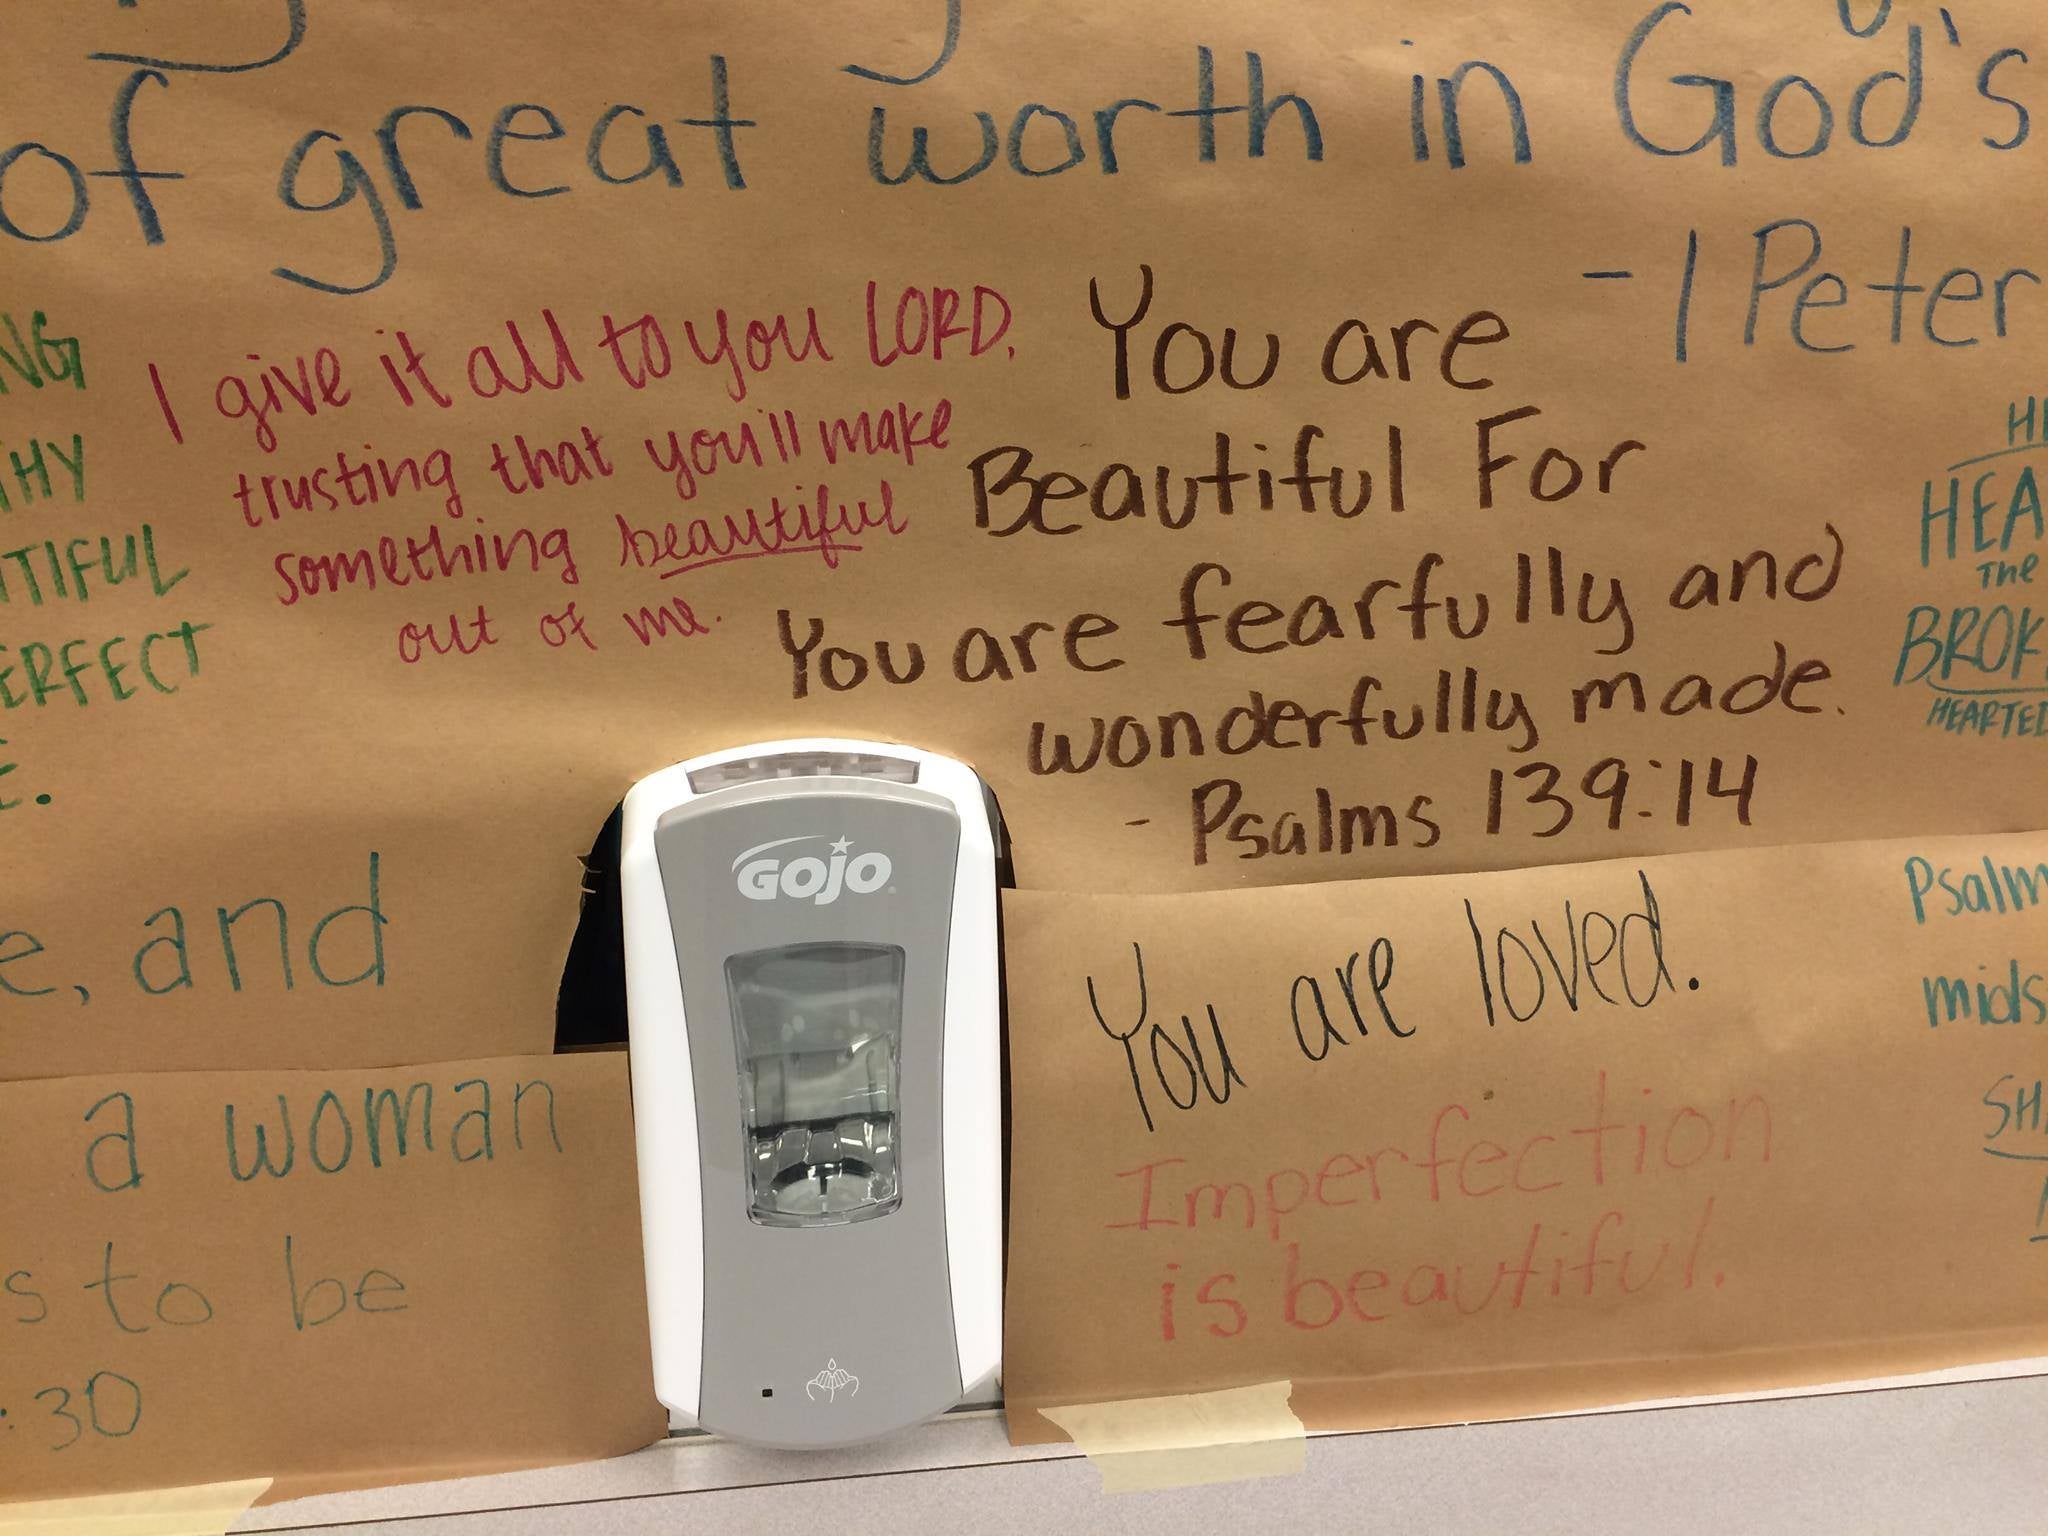 of great worth in God's
- 1 Peter
I give it all to you LORD,
trusting that you'll make
something beautiful
out of me.
You are
Beautiful For
You are fearfully and
wonderfully made.
- Psalms 139:14
THE
BROK
HEARTED
and
a woman
to be
:30
GOJO
You are loved.
Imperfection
is beautiful.